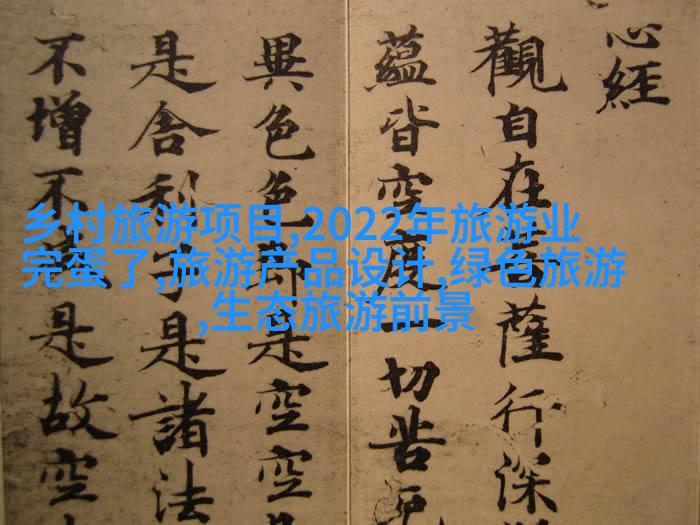 心經
觀自在菩薩行深
蘊皆空度一切苦厄
異色色即是空空
是舍利子是諸法
不增不減是故空
乡村旅游项目,2022年旅游业
完蛋了,旅游产品设计,绿色旅游
,生态旅游前景